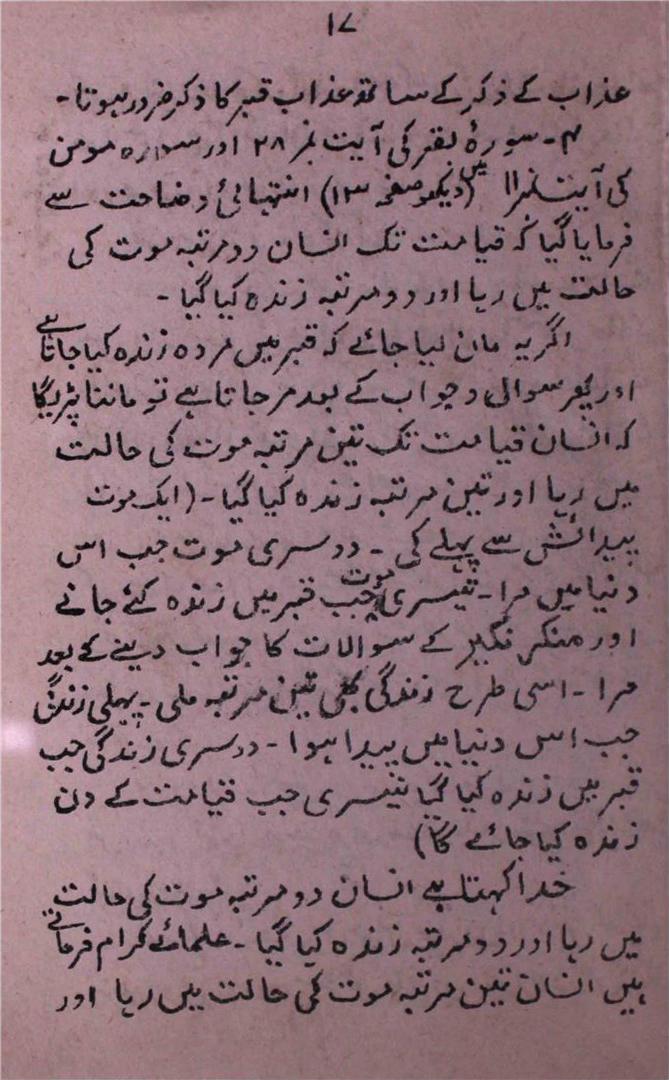 ۱۷
عذاب کے ذکر کے ساتھ عذاب قبر کا ذکر ضرور ہوتا۔
۴۔ سورۂ بقر کی آیت نمبر ۲۸ اور سورہ مومن
کی آیت نمبر ۱۱ میں (دیکھو صفحہ ۱۳) انتہائی وضاحت سے
فرمایا گیا کہ قیامت تک انسان دو مرتبہ موت کی
حالت میں رہا اور دو مرتبہ زندہ کیا گیا۔
اگر یہ مان لیا جائے کہ قبر میں مردہ زندہ کیا جاتا ہے
اور پھر سوال و جواب کے بعد مر جاتا ہے تو ماننا پڑیگا
کہ انسان قیامت تک تین مرتبہ موت کی حالت
میں رہا اور تین مرتبہ زندہ کیا گیا۔ (ایک موت
پیدائش سے پہلے کی۔ دوسری موت جب اس
دنیا میں مرا۔ تیسری موت جب قبر میں زندہ کئے جانے
اور منکر نکیر کے سوالات کا جواب دینے کے بعد
مرا۔ اسی طرح زندگی بھی تین مرتبہ ملی۔ پہلی زندگی
جب اس دنیا میں پیدا ہوا۔ دوسری زندگی جب
قبر میں زندہ کیا گیا تیسری جب قیامت کے دن
زندہ کیا جائے گا)
خدا کہتا ہے انسان دو مرتبہ موت کی حالت
میں رہا اور دو مرتبہ زندہ کیا گیا۔ علمائے کرام فرماتے
ہیں انسان تین مرتبہ موت کی حالت میں رہا اور